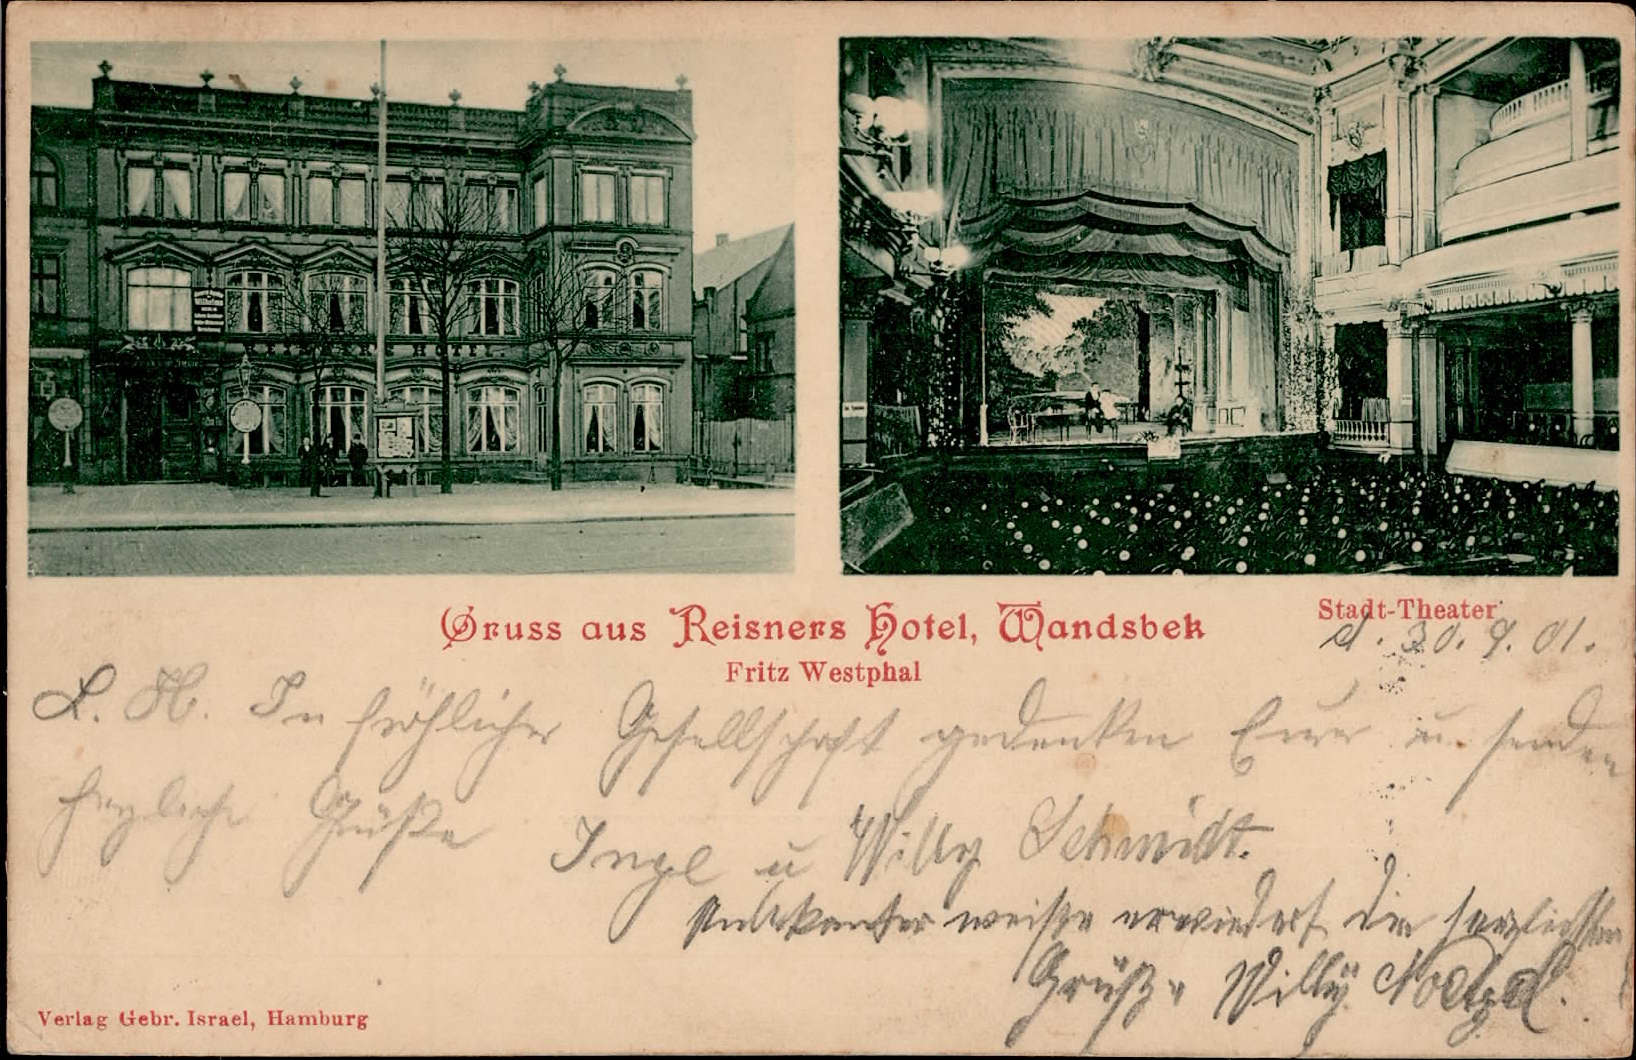 Gruss aus Reisners Hotel, Wandsbek
Fritz Westphal
Stadt-Theater
d. 30. 9. 01.
L. H. In fröhlicher Gesellschaft gedenken Eurer u. senden
herzliche Grüße
u Willy Schmidt.
Unbekannter weise erwiedert die herzlichsten
Grüße Willy
Verlag Gebr. Israel, Hamburg